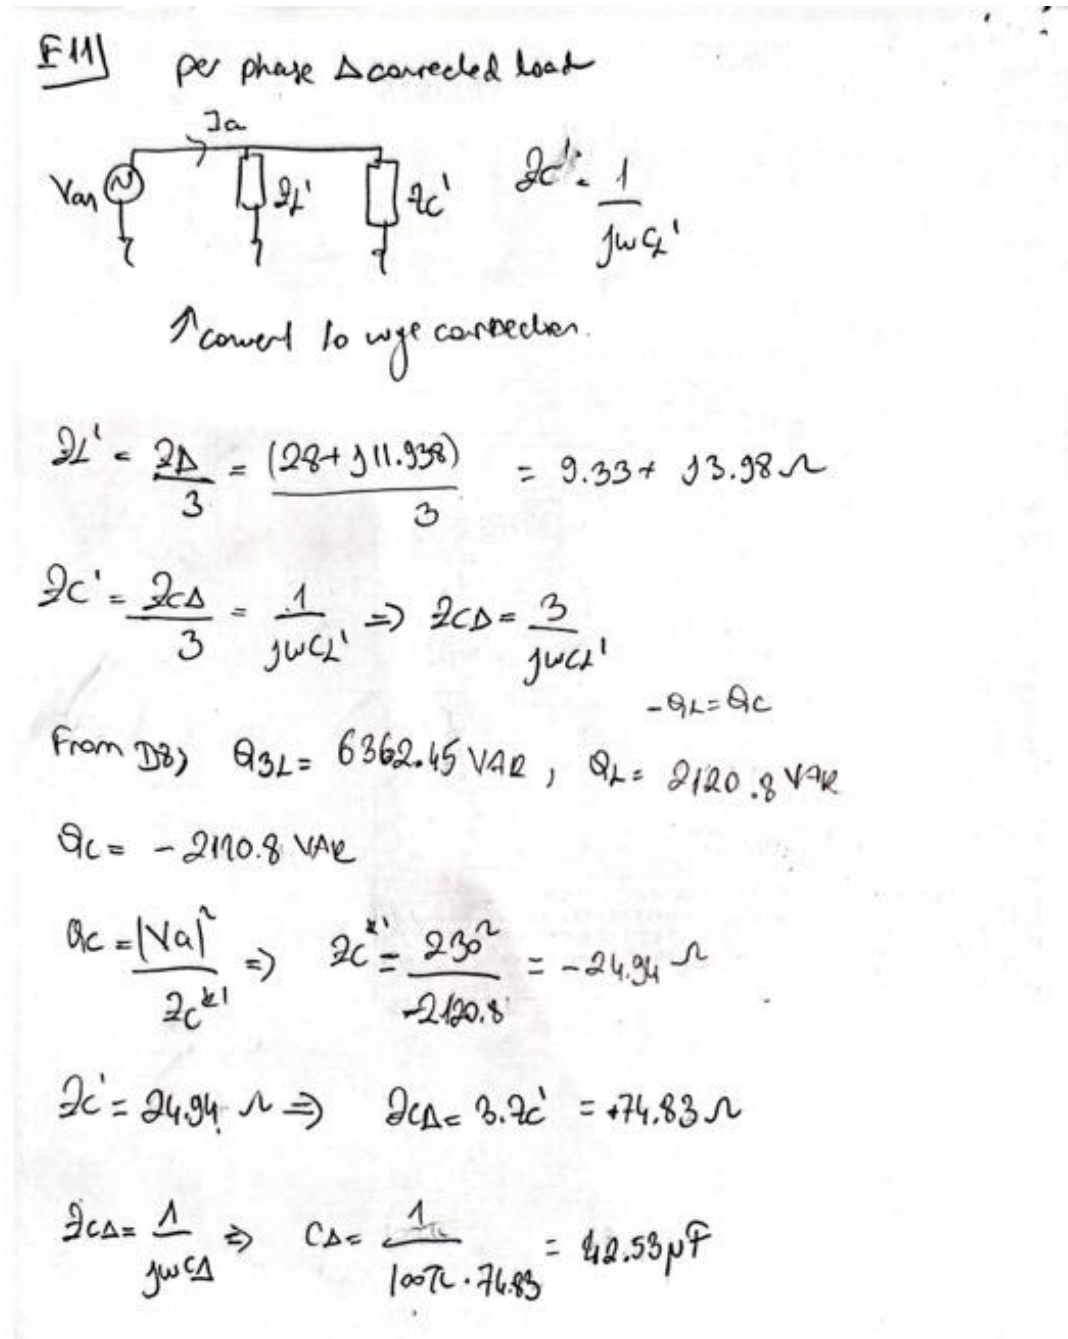 E11) per phase Δ connected load
Ia
Van ZL' Zc' Zc' = 1 / jωCL'
↑ convert to wye connection.
ZL' = ZΔ / 3 = (28 + j11.938) / 3 = 9.33 + j3.98 Ω
Zc' = ZcΔ / 3 = 1 / jωCL' => ZcΔ = 3 / jωCL'
-QL = Qc
From D8) Q3L = 6362.45 VAR, QL = 2120.8 VAR
Qc = -2120.8 VAR
Qc = |Va|² / Zc*' => Zc*' = 230² / -2120.8 = -24.94 Ω
Zc' = 24.94 Ω => ZcΔ = 3.Zc' = +74.83 Ω
ZcΔ = 1 / jωCΔ => CΔ = 1 / 100π.74.83 = 42.53 μF